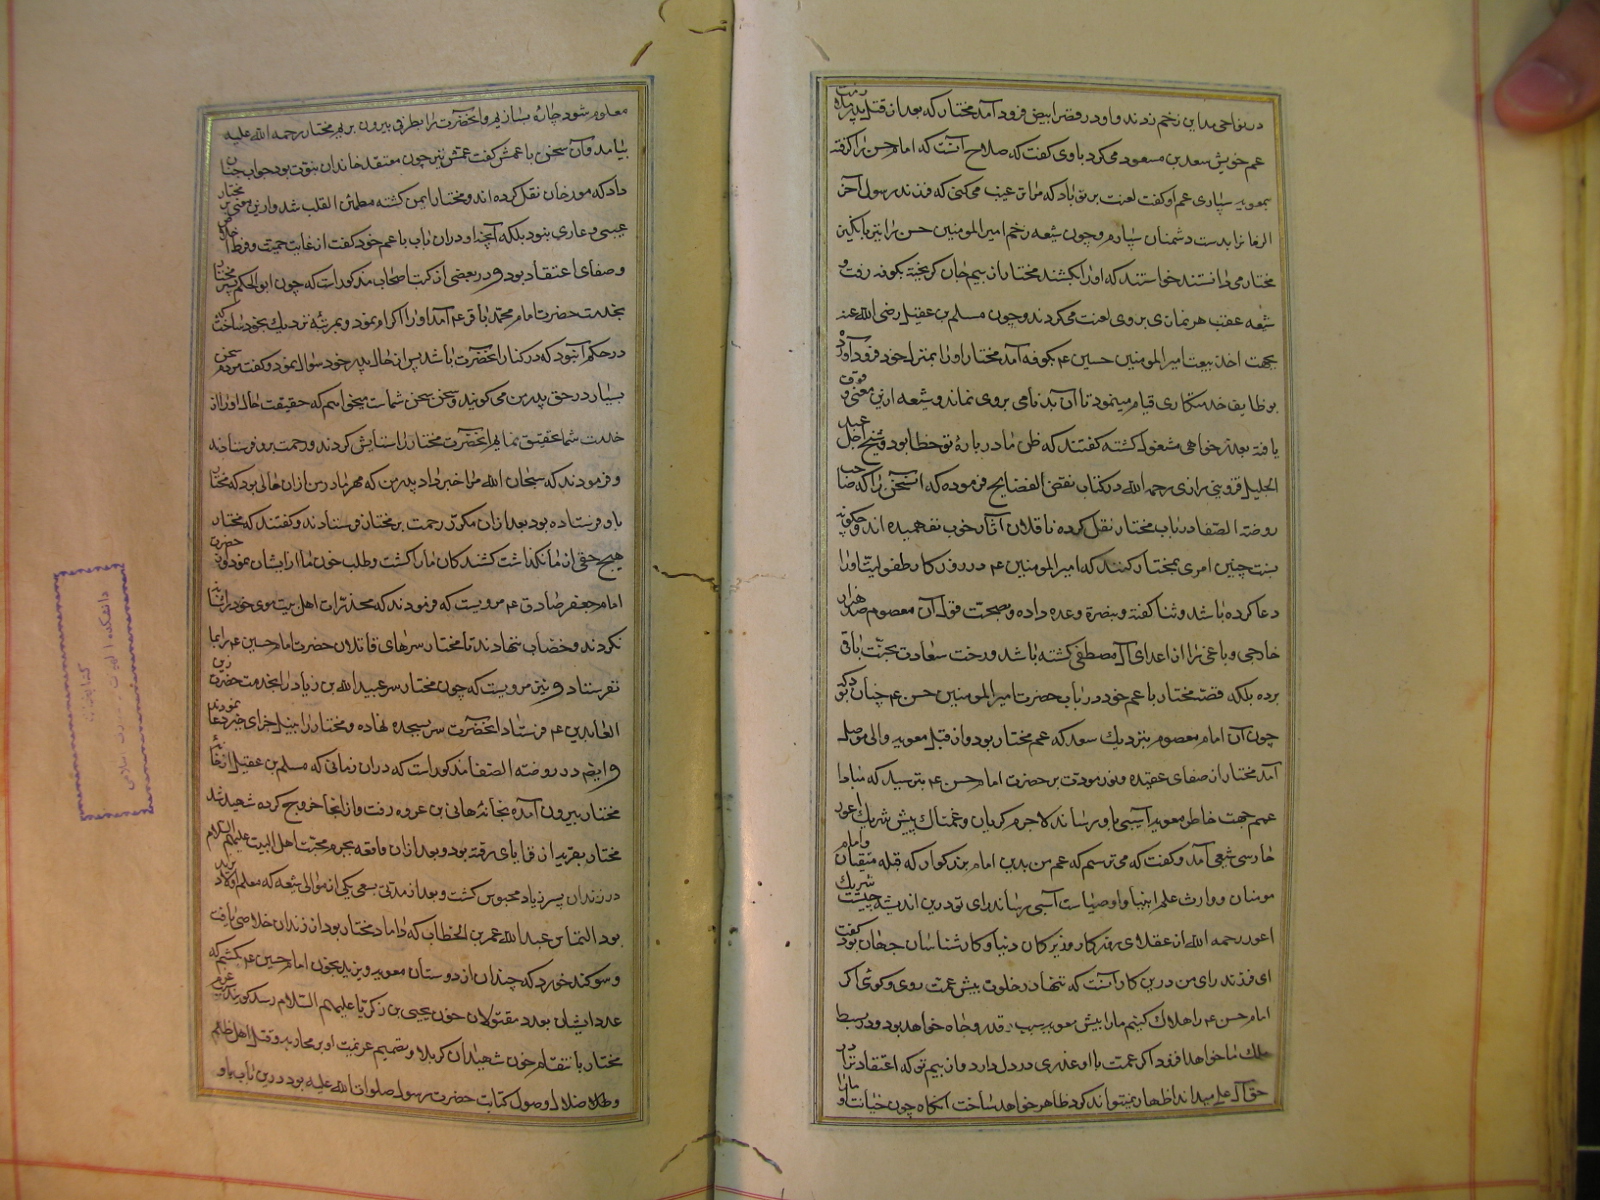 در نواحی مداین زخم زدند و او در قصر ابیض فرود آمد مختار که بعد از قتل پدر ملازمت
عم خویش سعد بن مسعود می کرد با وی گفت که صلاح آنست که امام حسن را گرفته
بمعویه سپاری عم او گفت لعنت بر تو باد که مرا تر غیب می کنی که فرزند رسول آخر
الزمانرا بدست دشمنان سپارم و چون شیعه زخم امیر المومنین حسن را نیز بانگیز
مختار می دانستند خواستند که او را بکشند مختار از بیم جان گریخته بکوفه رفت و
شیعه عقب هر نمازی بر وی لعنت می کردند و چون مسلم بن عقیل رضی الله عنه
بجهت اخذ بیعت امیر المومنین حسین ع م بکوفه آمد مختار او را بمنزل خود فرود آورد
بوظایف خدمتکاری قیام مینمود تا آن بدنامی بر وی نماند و شیعه ازین معنی وقوف
یافته بعذر خواهی مشغول گشته گفتند که ظن ما در باره تو خطا بود و شیخ اجل عبد
الجلیل قزوینی رازی رحمه الله در کتاب نقض الفضایح فرموده که این سخن را که صاحب
روضة الصفا در باب مختار نقل کرده ناقلان آثار خوب نفهمیده اند و چگونه
نسبت چنین امری بمختار کنند که امیر المومنین ع م در روز کار طفولیت او را
دعا کرده باشد و ثنا گفته و بنصرة وعده داده و بصحت قول آن معصوم صد هزار
خارجی و باغی را از اعدای آل مصطفی کشته باشد و رخت سعادت بجنت باقی
برده بلکه قصه مختار با عم خود در باب حضرت امیر المومنین حسن ع م چنان بود که
چون آن امام معصوم بنزدیک سعد که عم مختار بود و از قبل معویه والی موصل
آمد مختار از صفای عقیده و فرط مودت بر حضرت امام حسن ع م بترسید که مبادا
عمم جهت خاطر معویه آسیبی باو رساند لاجرم گریان و غمناک پیش شریک اعور
حارسی شیعی آمد و گفت که می ترسم که عم من بدین امام بزرگوار که قبله متقیان و امام
مومنان و وارث علم انبیا و اوصیاست آسیبی رساند رای تو درین اندیشه چیست شریک
اعور رحمه الله از عقلای روزکار و زیرکان دنیا و کار شناسان جهان بود گفت
ای فرزند رای من درین کار آنست که تنها در خلوت پیش عمت روی و کوئی اگر
امام حسن ع م را هلاک کنیم ما را پیش معویه سبب قدر و جاه خواهد بود و در بسط
ملک ما خواهد افزود اگر عمت با او غدری در دل دارد و از بیم تو که اعتقاد ترا در
حق آل علی میداند اظهار نمیتواند کرد ظاهر خواهد ساخت آنگاه چون خیانت او ما را
معلوم شود چاره بسازیم و آنحضرت را بطرفی بیرون بریم مختار رحمه الله علیه
بیامد و آن سخن با عمش گفت عمش نیز چون معتقد خاندان نبوت بود جواب چنان
داد که مورخان نقل کرده اند و مختار ایمن گشته مطمئن القلب شد و ازین معنی بر مختار
عیبی و عاری نبود بلکه آنچه او در آن باب با عم خود گفت از غایت حمیت و فرط اخلاص
و صفای اعتقاد بود و در بعضی از کتب اصحاب مذکور است که چون ابو الحکم پسر مختار
بخدمت حضرت امام محمد باقر ع م آمد او را اکرام نمود و بمرتبه نزدیک بخود ساخت که
در حکم آن بود که در کنار آنحضرت باشد پس از حال پدر خود سوال نمود و گفت مردم سخن
بسیار در حق پدر من می گویند و سخن سخن شماست میخواهم که حقیقت حال او را از
خدمت شما تحقیق نمایم آنحضرت مختار را ستایش کردند و رحمت برو فرستاده
و فرمودند که سبحان الله مرا خبر داد پدر من که مهر مادر من از آن مالی بود که مختار
باو فرستاده بود بعد از آن مکرر رحمت بر مختار فرستادند و گفتند که مختار
هیچ حقی از ما نگذاشت کشندکان ما را کشت و طلب خون ما از ایشان نمود و از حضرت
امام جعفر صادق ع م مرویست که فرمودند که مخدرات اهل بیت موی خود را شانه
نکردند و خضاب ننهادند تا مختار سرهای قاتلان حضرت امام حسین ع م را بما
نفرستاد و نیز مرویست که چون مختار سر عبید الله بن زیاد را بخدمت حضرت زین
العابدین ع م فرستاد آنحضرت سر بسجده نهاده و مختار را بنیل جزای خیر دعا نمودند
و ایضا در روضة الصفا مذکور است که در آن زمانی که مسلم بن عقیل از خانه
مختار بیرون آمده بخانۀ هانی بن عروه رفت و از آنجا خروج کرده شهید شد
مختار بقریه از قرای رفته بود و بعد از آن واقعه بجرم محبت اهل البیت علیهم السلام
در زندان پسر زیاد محبوس گشت و بعد از مدتی بسعی یکی از موالی شیعه که معلم اولاد یزید
بود التماس عبد الله عمر بن الخطاب که داماد مختار بود از زندان خلاصی یافت
و سوگند خورد که چندان از دوستان معویه و یزید بخون امام حسین ع م بکشیم که
عدد ایشان بعدد مقتولان خون یحیی بن زکریا علیهم السلام رسد
مختار بانتقام خون شهیدان کربلا و تصمیم عزیمت او بر محاربه و قتل اهل ظلم
و ضلال وصول کتابت حضرت رسول صلوات الله علیه بود درین باب باو
کتابخانه
دانشکده الهیات